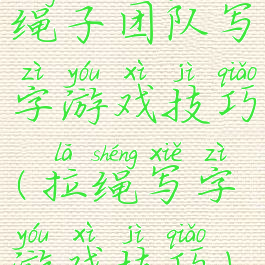 绳子团队写
zì yóu xì jì qiǎo
字游戏技巧
lā shéng xiě zì
(拉绳写字
yóu xì jì qiǎo
游戏技巧)